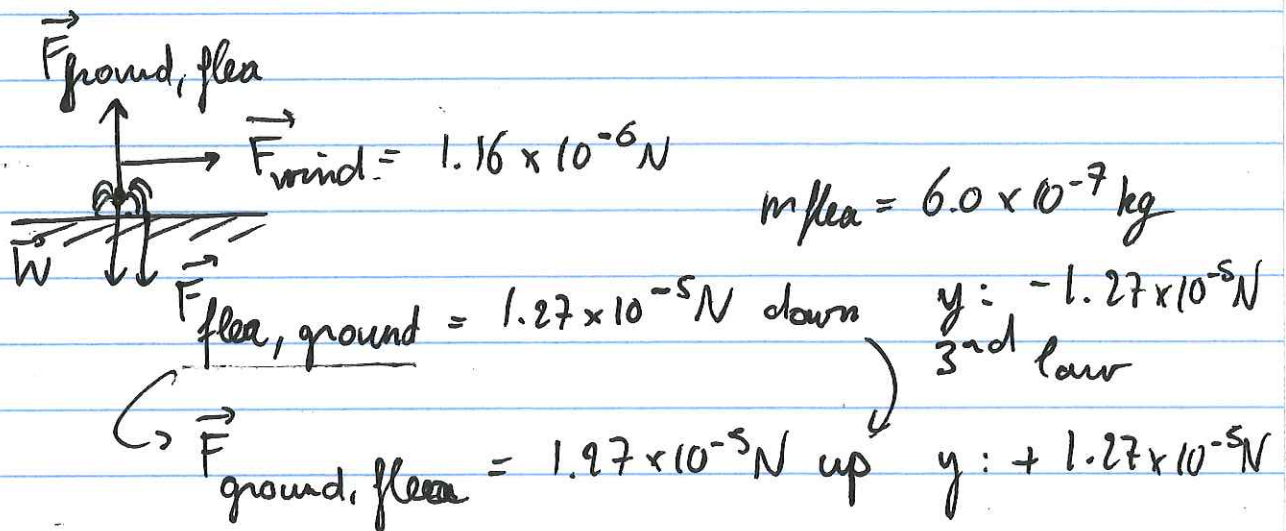 F⃗ground, flea
F⃗wind = 1.16 x 10⁻⁶ N
m flea = 6.0 x 10⁻⁷ kg
W⃗
F⃗flea, ground = 1.27 x 10⁻⁵ N down y: -1.27x10⁻⁵N
3rd law
F⃗ground, flea = 1.27 x 10⁻⁵ N up y: + 1.27x10⁻⁵N